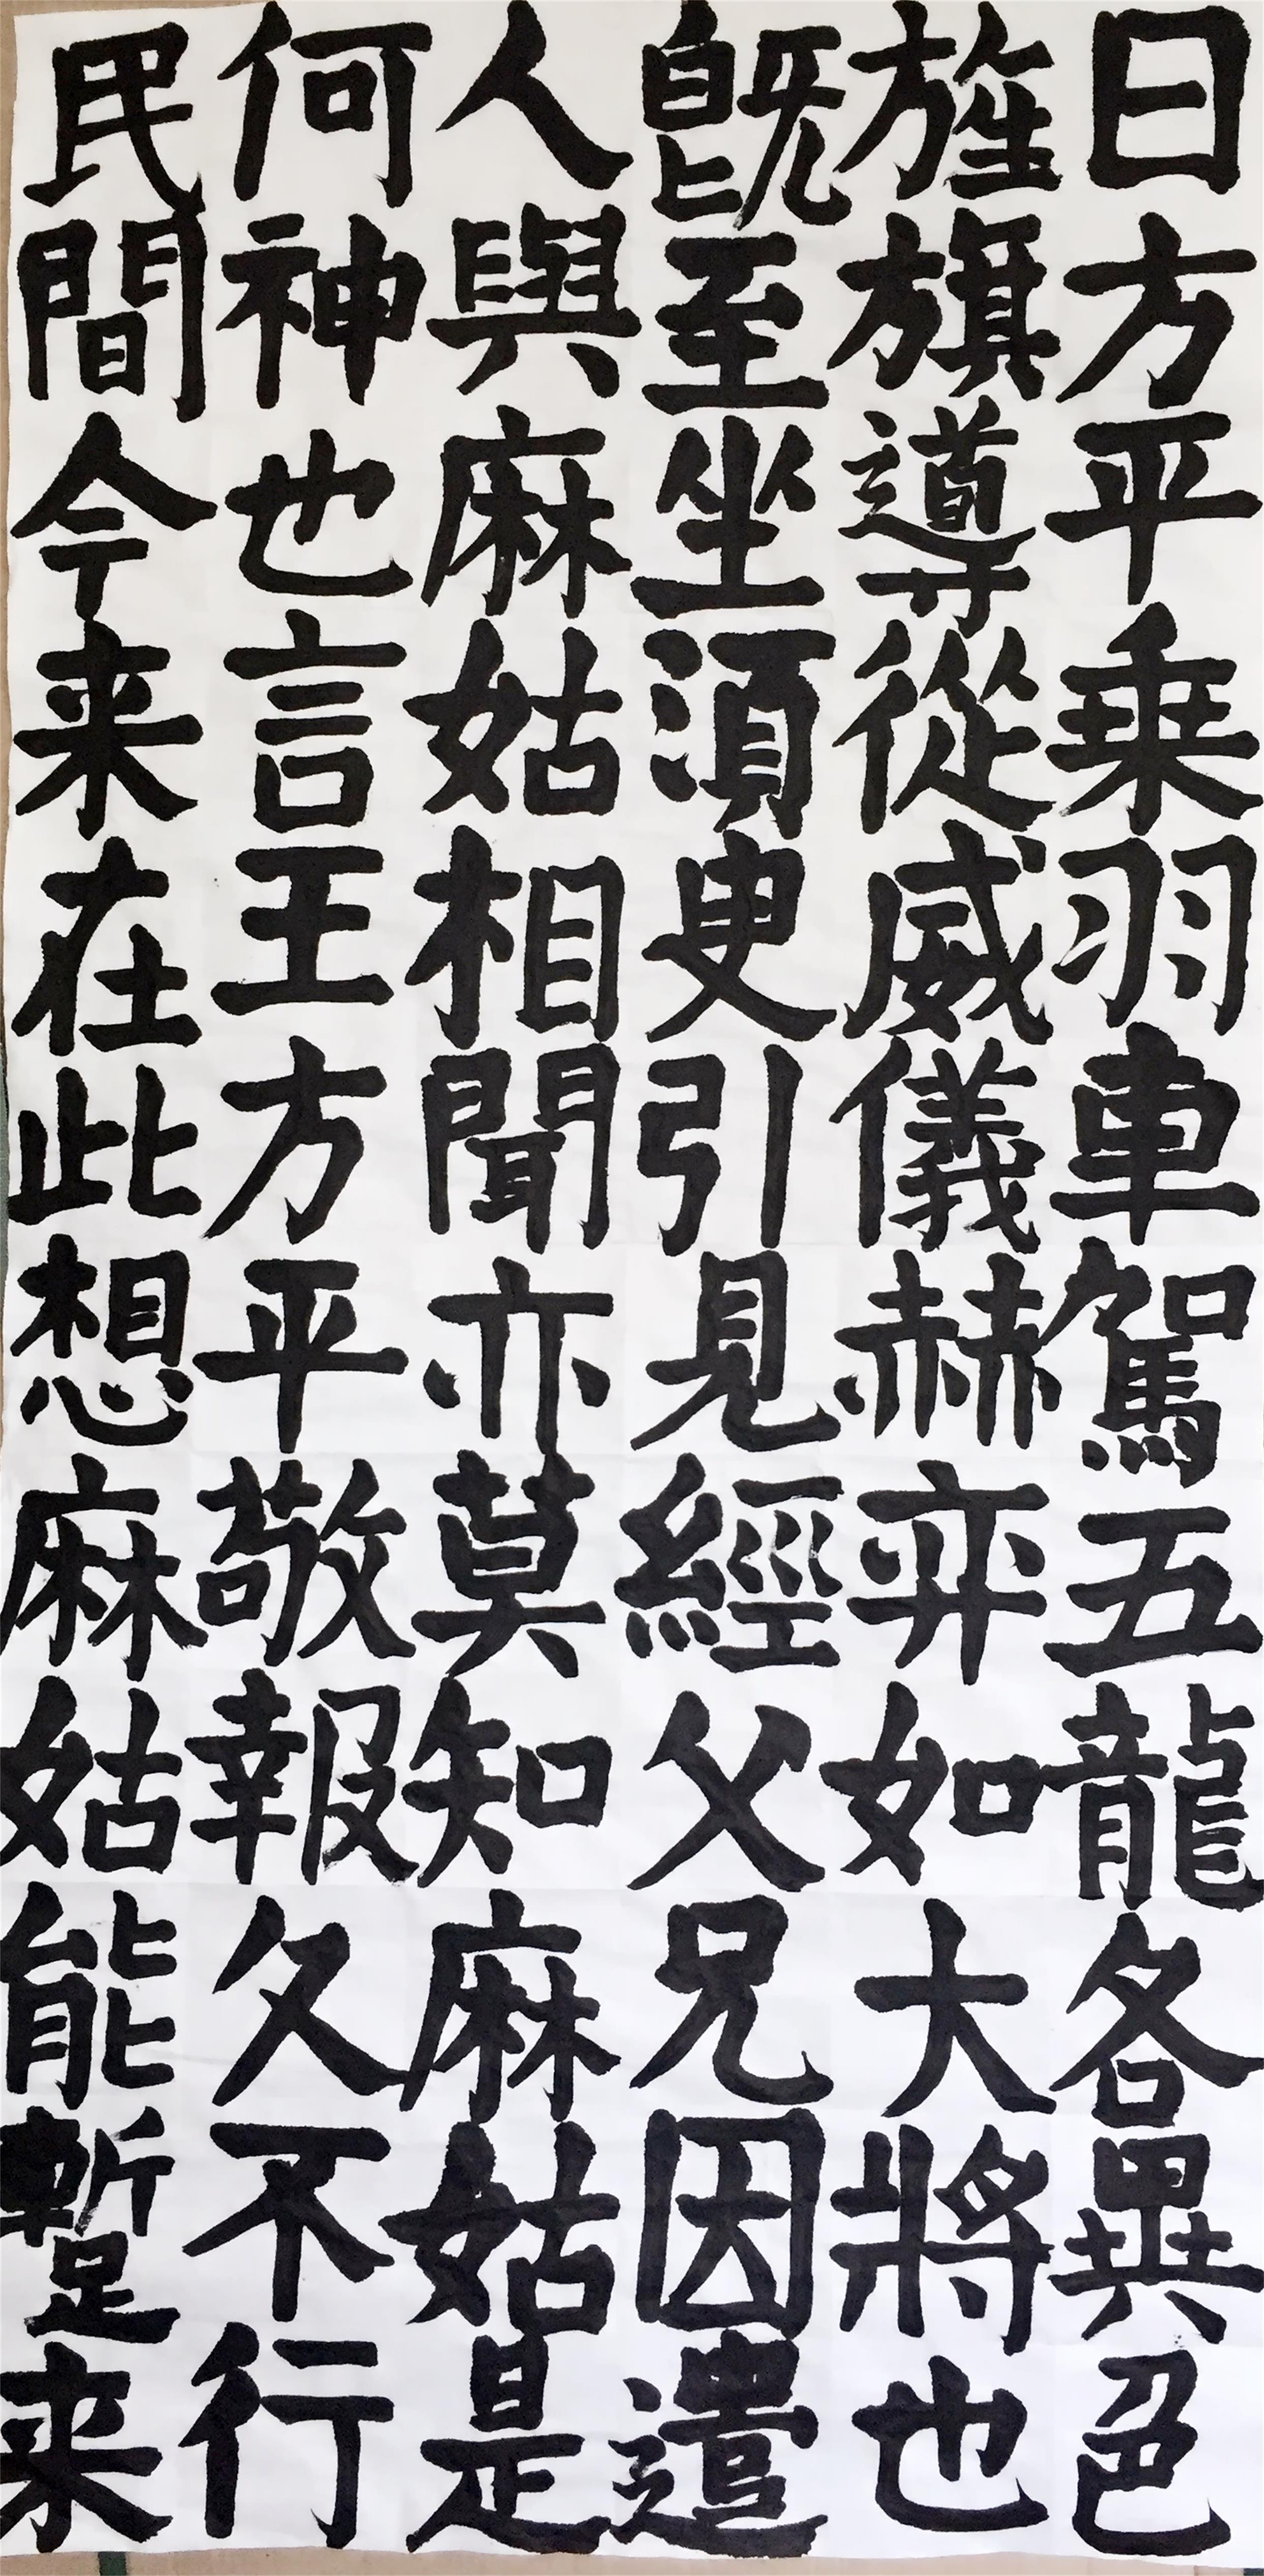 日方平乗羽車駕五龍各異色
旌旗導從威儀赫弈如大將也
旣至坐須叟引見經父兄因遣
人與麻姑相聞亦莫知麻姑是
何神也言王方平敬報久不行
民間今来在此想麻姑能蹔来